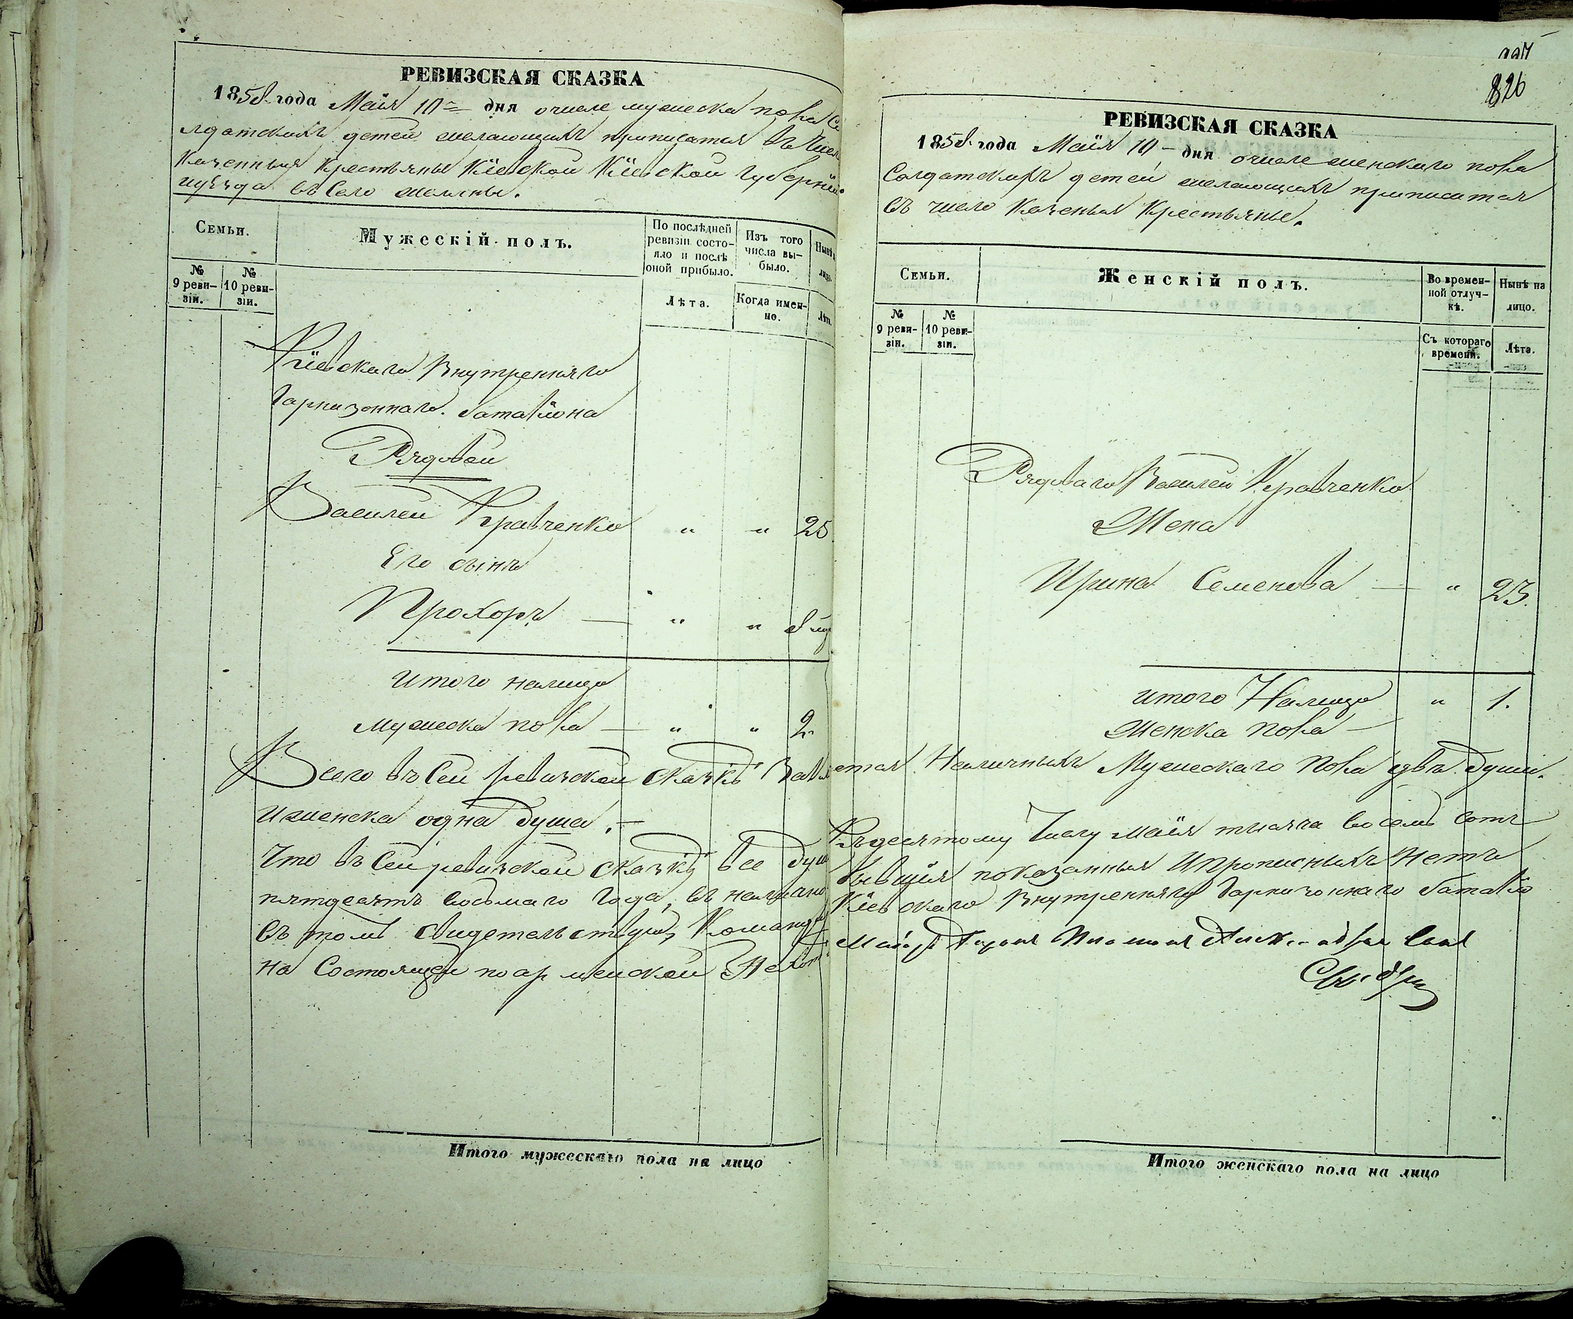 РЕВИЗСКАЯ СКАЗКА
1858 года Маія 10 дня о числе мужеска пола Со
лдатскихъ детей желающихъ приписатся въ число
Казенныя Крестьяны Кіевской Кіевской губерніи
иуѣзда въ Село
Семьи.
Мужескій полъ.
По послѣдней ревизіи состояло и послѣ оной прибыло.
Изъ того числа выбыло.
Нынѣ на лицо.
№ 9 реви-зіи.
№ 10 реви-зіи.
Лѣта.
Когда имен-но.
Лѣта.
Кіевскаго Внутренняго
Гарнизоннаго баталіона
Рядовой
Василей Кравченко " " 25
Его сынъ
Прохоръ — " "
Итого налицо
мужеска пола — " " 2
Итого мужескаго пола на лицо
826
РЕВИЗСКАЯ СКАЗКА
1858 года Маія 10 дня о числе женскаго пола
Солдатскихъ детей желающихъ приписатся
въ число Казенныя Крестьяне.
Семьи.
Женскій полъ.
Во времен-ной отлуч-кѣ.
Нынѣ на лицо.
№ 9 реви-зіи.
№ 10 реви-зіи.
Съ котораго времени.
Лѣта.
Рядоваго Василей Кравченко
Жена
Ирина Семенова — " 23.
итого Налицо " 1.
женска пола —
Всего въ Сей ревизской сказкѣ Являетея Наличныхъ Мужескаго Пола двѣ души.
и женска одна душа. —
Что въ Сей ревизской сказкѣ все души Къ десятому Числу маія тысяча восемъ сотъ
пятдесятъ восьмаго года, въ показанныя И прописныхъ Нетъ
въ томъ свидетельствую, Командиръ Кіевскаго Внутренняго Гарнизоннаго баталіо
на Состоящей по армейской Пехот Маіоръ
Итого женскаго пола на лицо